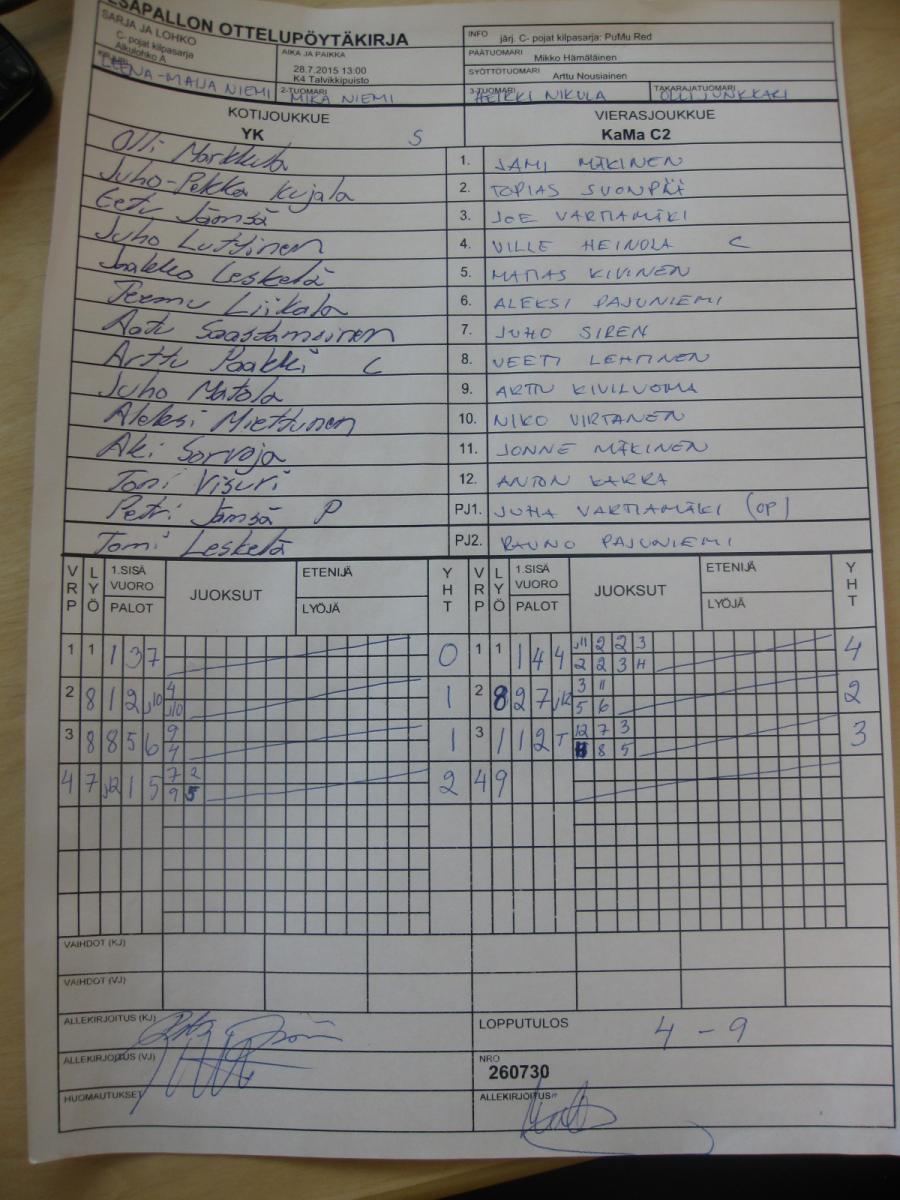 ESÄPALLON OTTELUPÖYTÄKIRJA
SARJA JA LOHKO
C- pojat kilpasarja
Alkulohko A
AIKA JA PAIKKA
28.7.2015 13:00
K4 Talvikkipuisto
INFO järj. C- pojat kilpasarja: PuMu Red
PÄÄTUOMARI
Mikko Hämäläinen
SYÖTTÖTUOMARI
Arttu Nousiainen
KIRJURI
LEENA-MAIJA NIEMI
2-TUOMARI
MIKA NIEMI
3-TUOMARI
HEIKKI NIKULA
TAKARAJATUOMARI
OLLI JUNKKARI
KOTIJOUKKUE
YK S
VIERASJOUKKUE
KaMa C2
Olli Markkula 1. JAMI MÄKINEN
Juho-Pekka Kujala 2. TOPIAS SUONPÄÄ
Eetu Jämsä 3. JOE VARTIAMÄKI
Juho Luttinen 4. VILLE HEINOLA C
Jaakko Leskelä 5. MATIAS KIVINEN
Teemu Liikala 6. ALEKSI PAJUNIEMI
Aatu Saastamoinen 7. JUHO SIREN
Arttu Paakki C 8. VEETI LEHTINEN
Juho Matala 9. ARTTU KIVILUOMA
Aleksi Miettunen 10. NIKO VIRTANEN
Aki Sarvoja 11. JONNE MÄKINEN
Tomi Visuri 12. ANTON KARRA
Petri Jämsä P PJ1. JUHA VARTIAMÄKI (OP)
Tomi Leskelä PJ2. RAUNO PAJUNIEMI
VRP LYÖ 1.SISÄ VUORO PALOT JUOKSUT ETENIJÄ LYÖJÄ YHT VRP LYÖ 1.SISÄ VUORO PALOT JUOKSUT ETENIJÄ LYÖJÄ YHT
1 1 1 3 7 0 1 1 1 4 4 J11 2 2 3 4
2 2 3 H
2 8 1 2 J10 4 1 2 8 2 7 J12 3 11 2
J10 5 6
3 8 8 5 6 9 1 3 1 1 2 T 12 7 3 3
4 8 5
4 7 J12 1 5 7 2 2 4 9
9 5
VAIHDOT (KJ)
VAIHDOT (VJ)
ALLEKIRJOITUS (KJ)
LOPPUTULOS 4 - 9
ALLEKIRJOITUS (VJ)
NRO
260730
HUOMAUTUKSET
ALLEKIRJOITUS